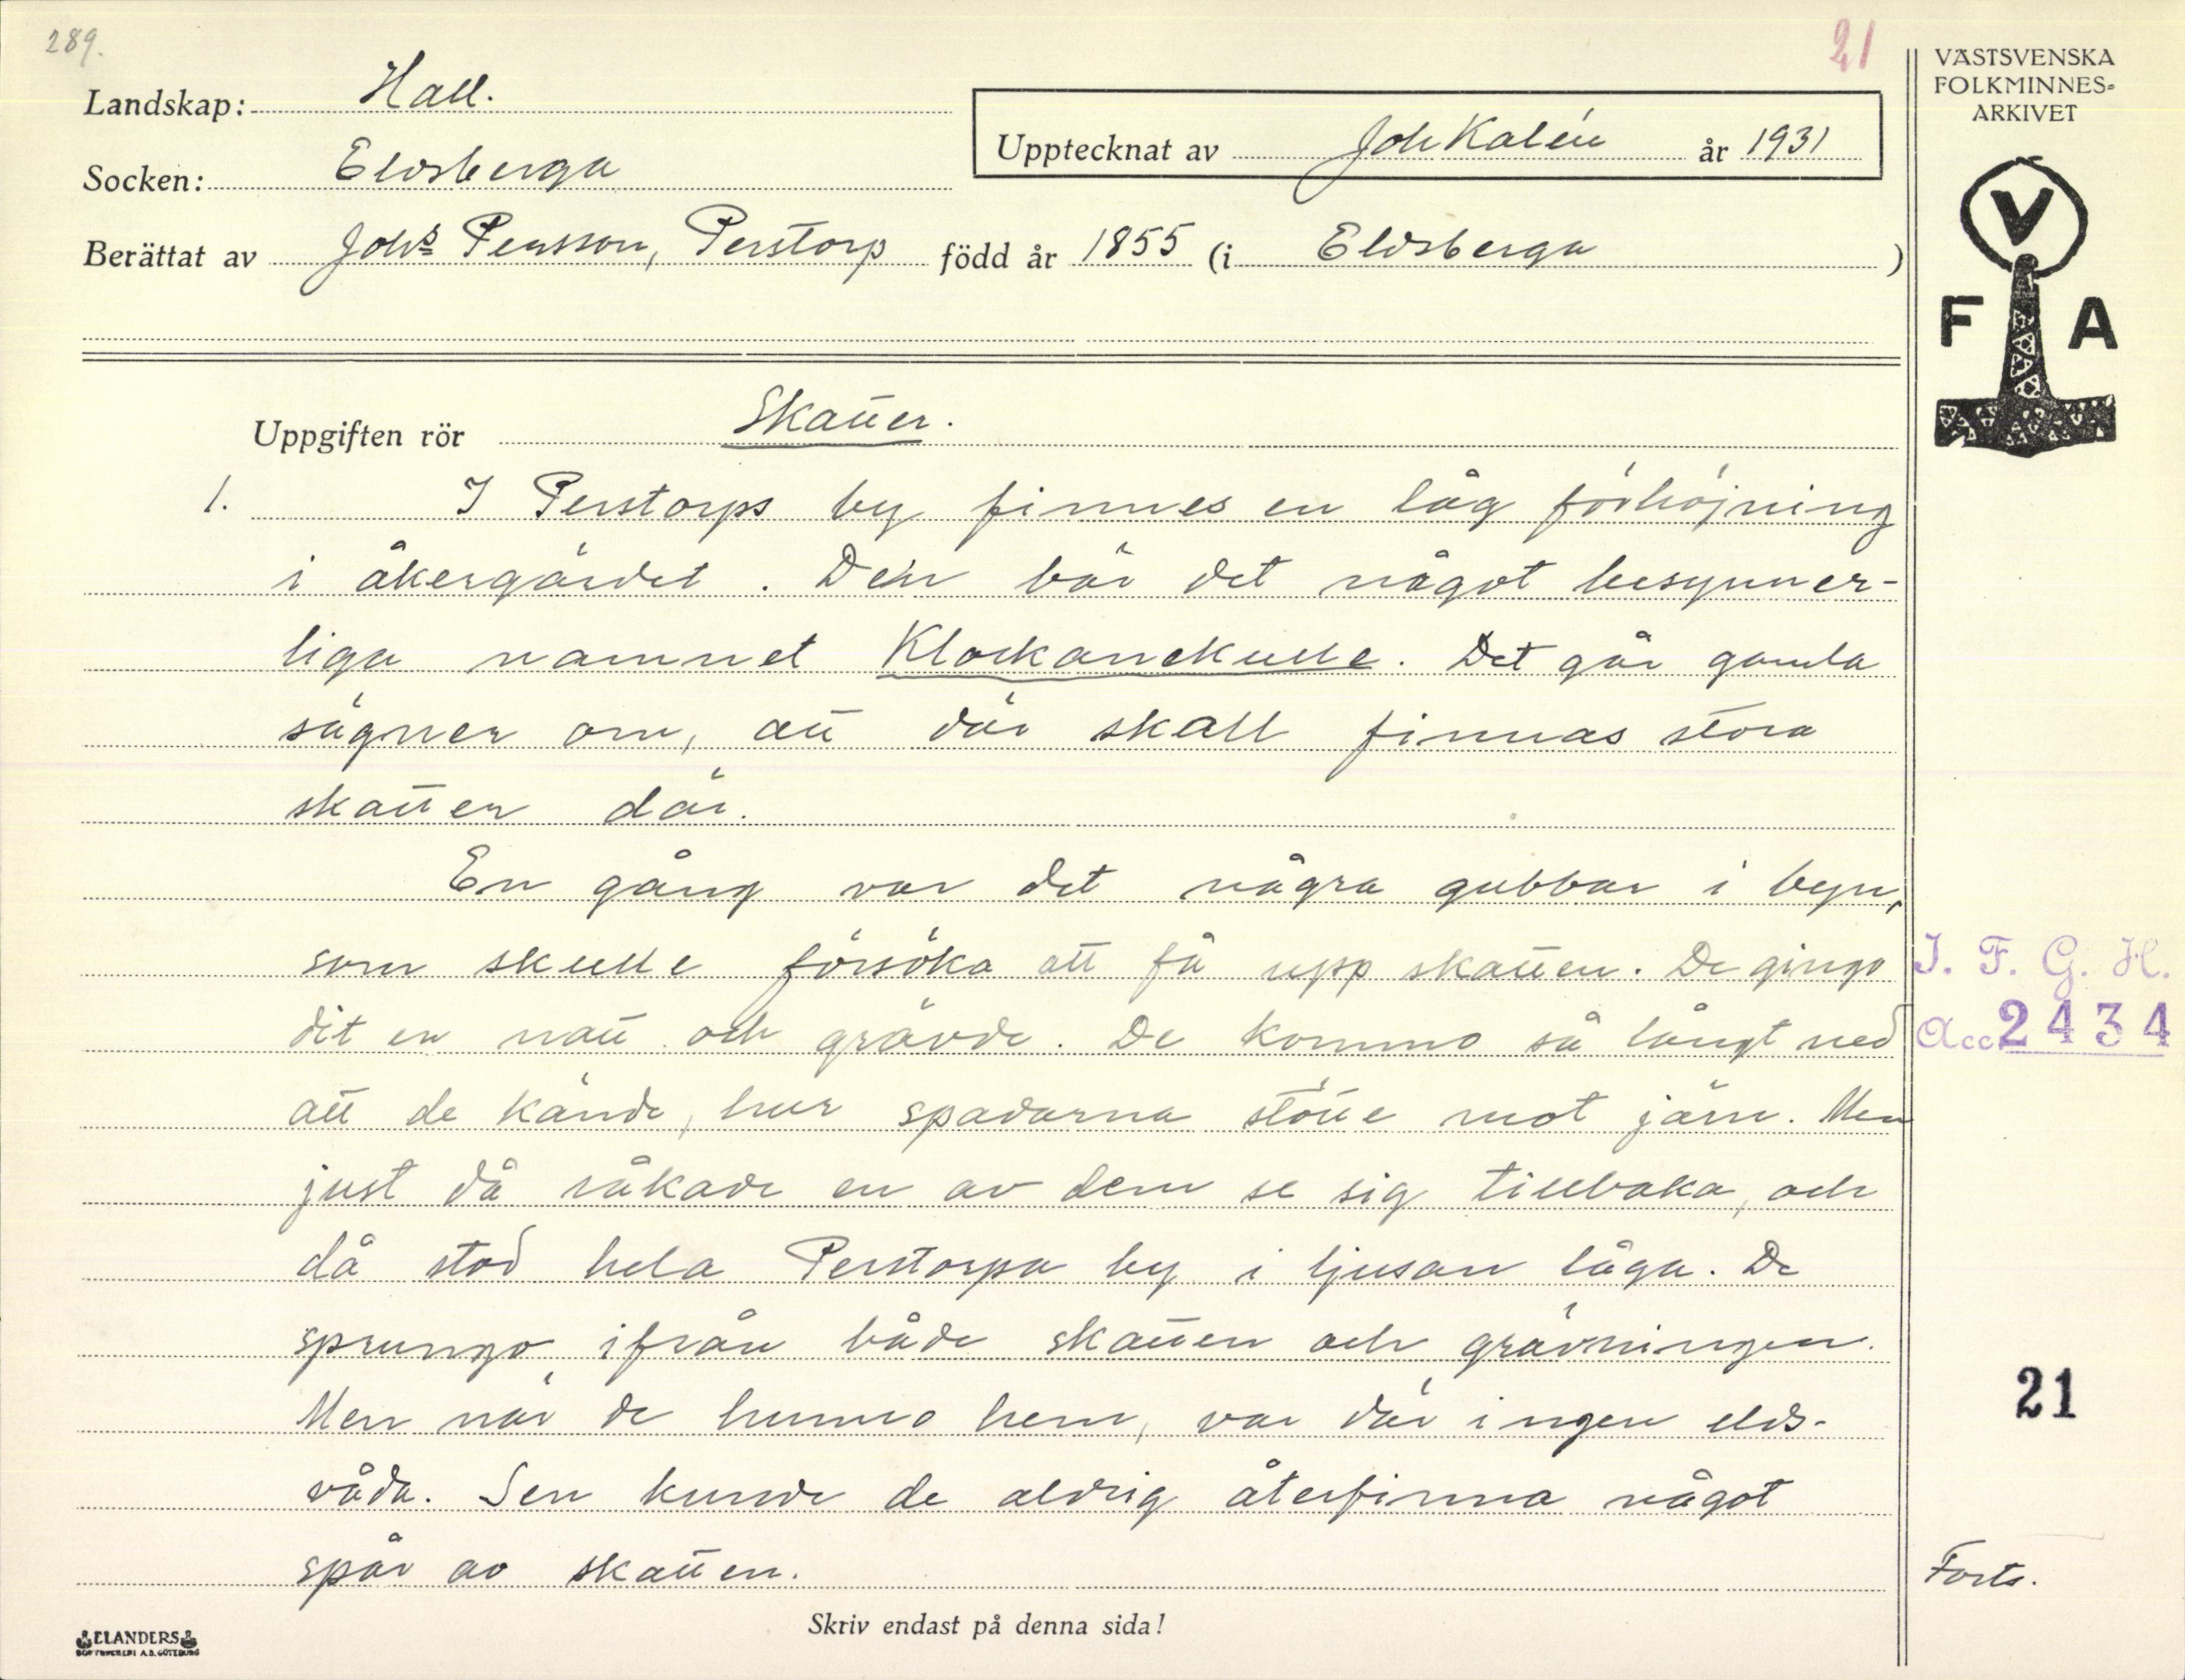 289.
21
VÄSTSVENSKA
FOLKMINNES-
ARKIVET
Landskap: Hall.
Upptecknat av Joh Kalén år 1931
Socken: Eldsberga
Berättat av Johs Persson, Perstorp född år 1855 (i Eldsberga )
V
F A
Uppgiften rör Skatter.
1. I Perstorps by finnes en låg förhöjning
i åkergärdet. Den bär det något besynner-
liga namnet Klockarekulle. Det går gamla
sägner om, att där skall finnas stora
skatter där.
En gång var det några gubbar i byn,
som skulle försöka att få upp skatten. De gingo
dit en natt och grävde. De kommo så långt ned
att de kände, hur spadarna stötte mot järn. Men
just då råkade en av dem se sig tillbaka, och
då stod hela Perstorpa by i ljusan låga. De
sprungo ifrån både skatten och grävningen.
Men när de hunno hem, var där ingen elds-
våda. Sen kunde de aldrig återfinna något
spår av skatten.
I. F. G. H.
Acc. 2434
21
Forts.
Skriv endast på denna sida!
ELANDERS
BOKTRYCKERI A.B. GÖTEBORG